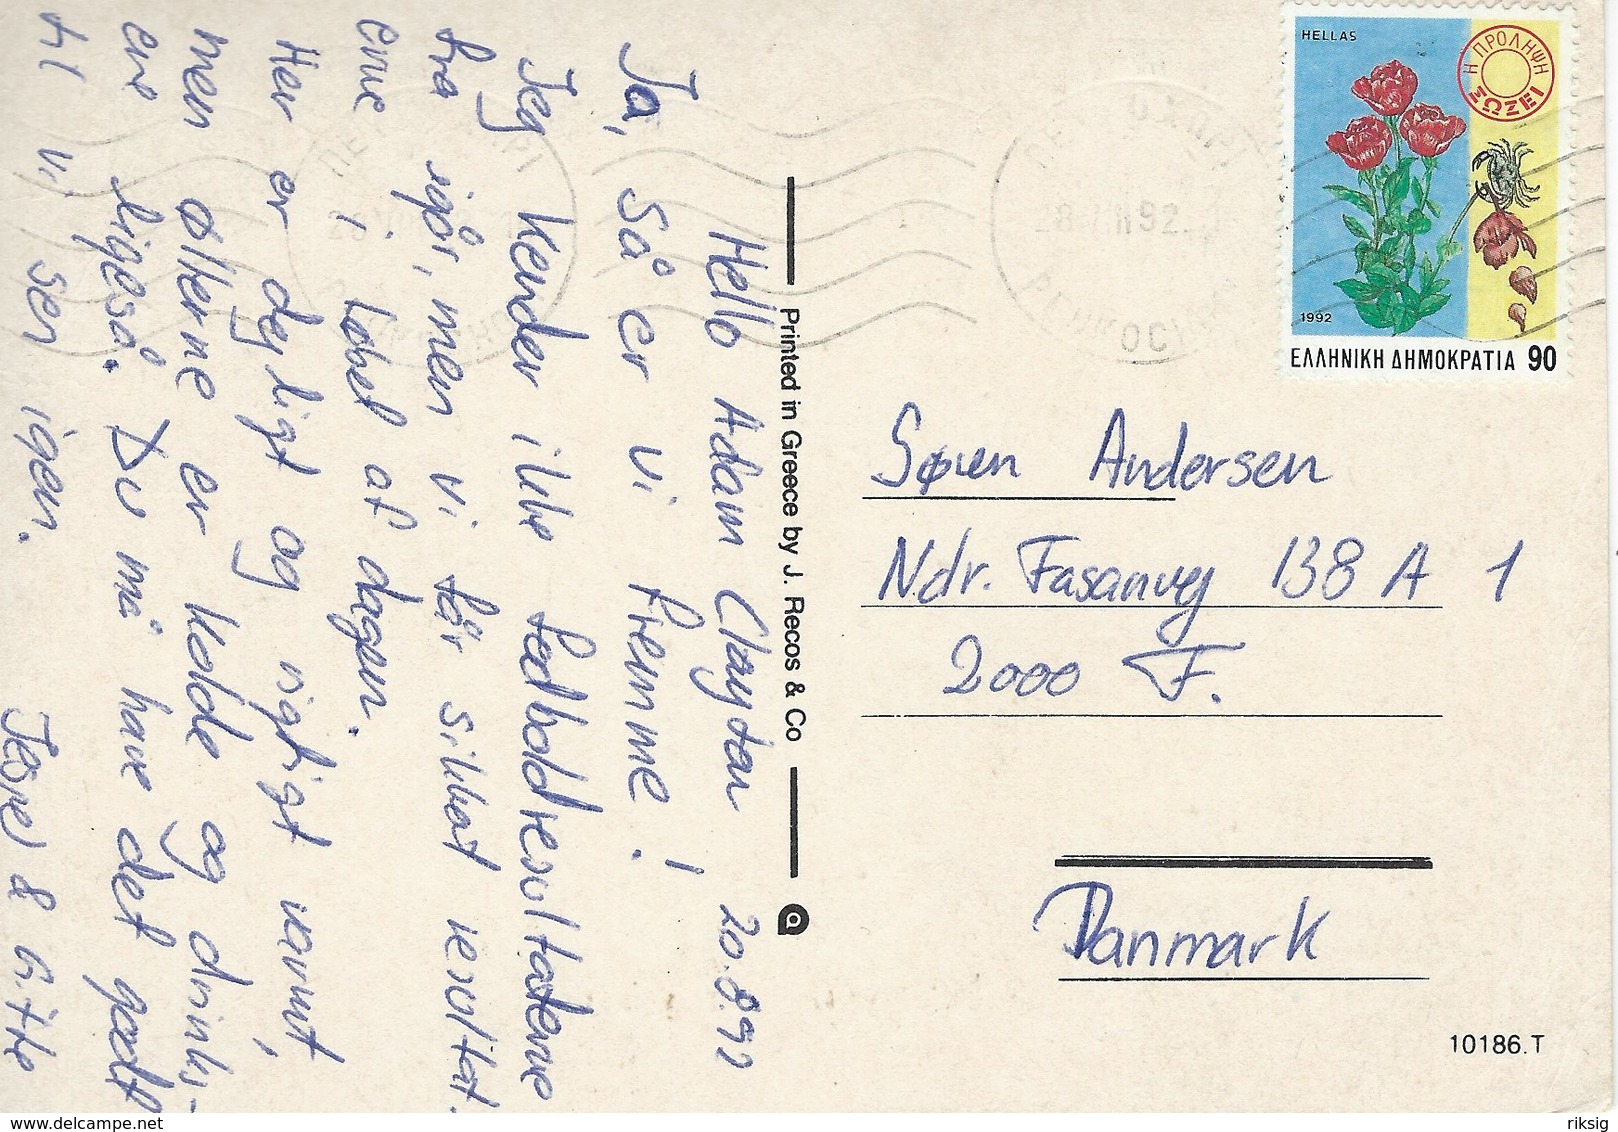 Hello Adam Clayton 20.8.92
Ja, så er vi fremme!
Jeg kender ikke fodboldresultaterne
fra igår, men vi får sikkert resultat.
erne i løbet af dagen.
Her er dejligt og rigtigt varmt,
men øllerne er kolde og drinks-
ene ligeså. Du må have det godt
til vi ses igen.
Jesper & Gitte
Printed in Greece by J. Recos & Co
a
HELLAS
Η ΠΡΟΛΗΨΗ ΣΩΖΕΙ
1992
ΕΛΛΗΝΙΚΗ ΔΗΜΟΚΡΑΤΙΑ 90
92
Søren Andersen
Ndr. Fasanvej 138 A 1
2000 F.
Danmark
10186.T
delcampe.net
riksig